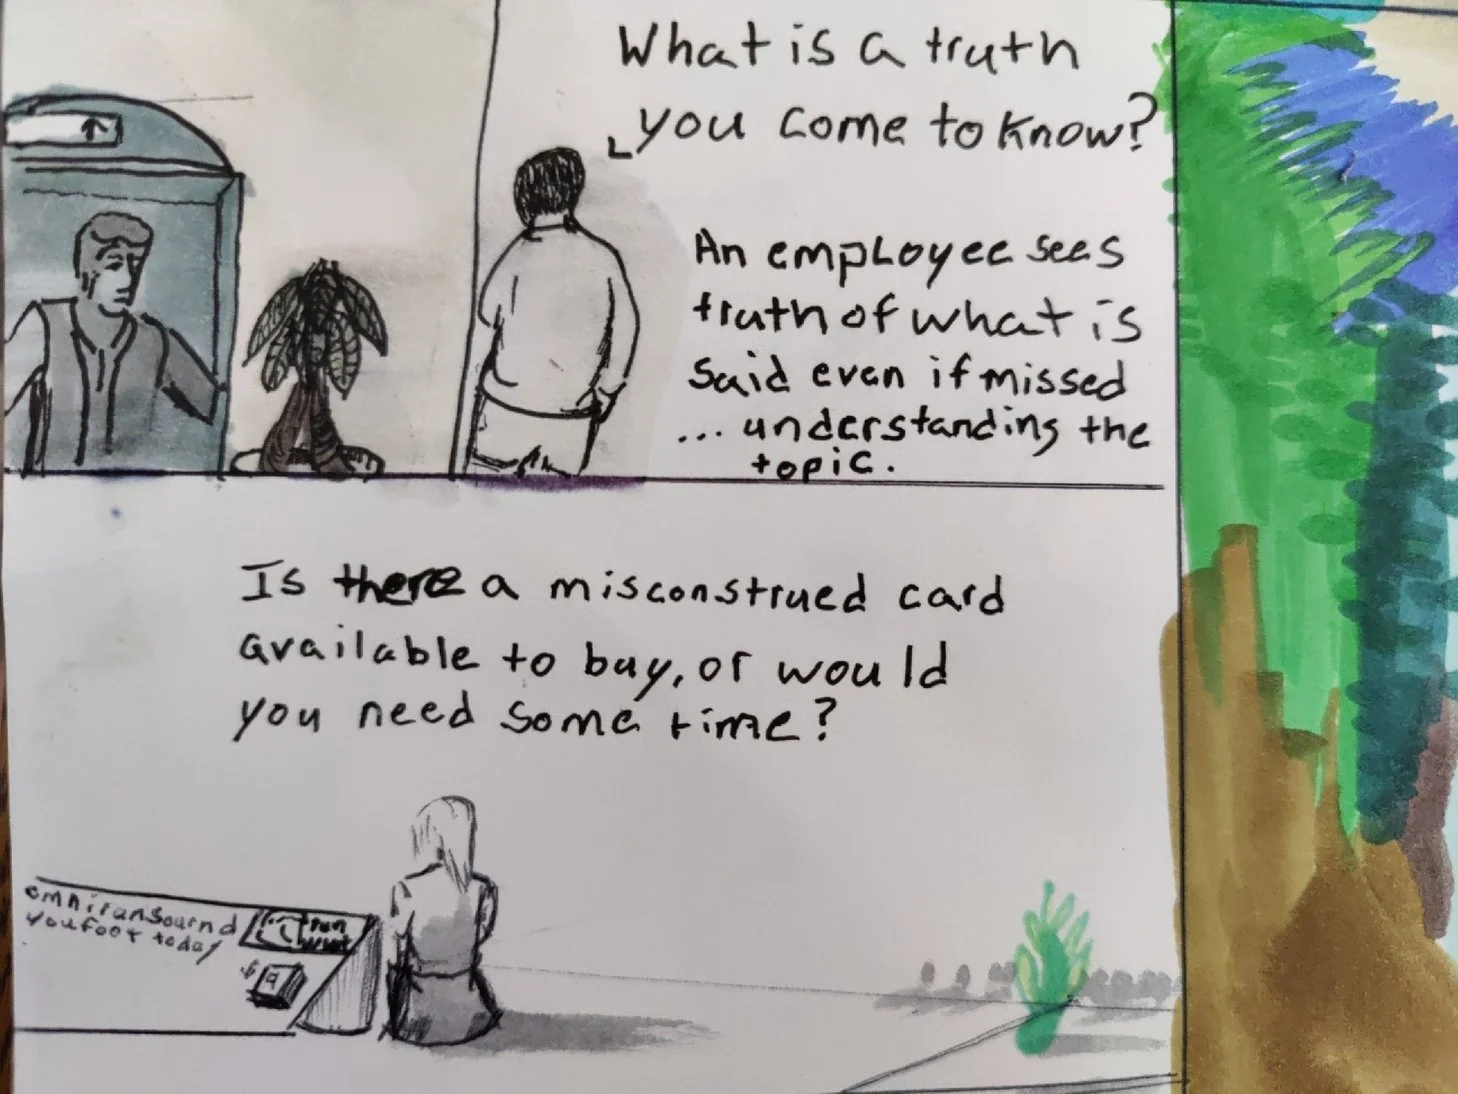 What is a truth
you come to know?
An employee sees
truth of what is
said even if missed
... understanding the
topic.
Is there a misconstrued card
available to buy, or would
you need some time?
today
$